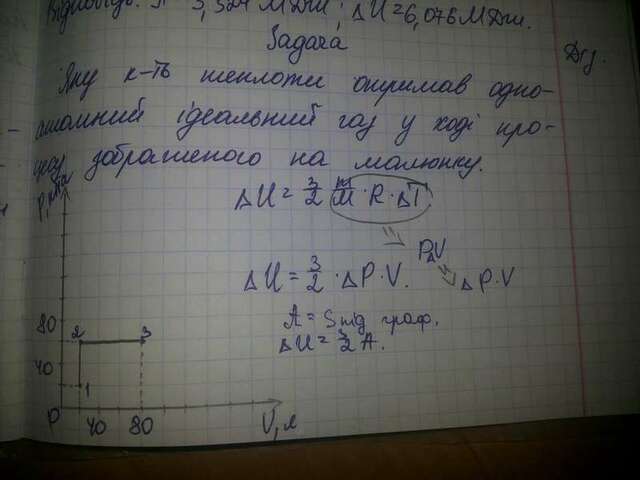 Відповідь: A= 3,324 МДж; ΔU=6,076 МДж.
Задача
Д/з.
Яку к-ть теплоти отримав одно-
атомний ідеальний газ у ході про-
цесу зображеного на малюнку.
ΔU = 3/2 m/M · R · ΔT
PΔV
ΔU = 3/2 · ΔP · V.
ΔP · V
A = Sпід граф.
ΔU = 3/2 A.
P,
80
2
3
40
1
0
40
80
V, л